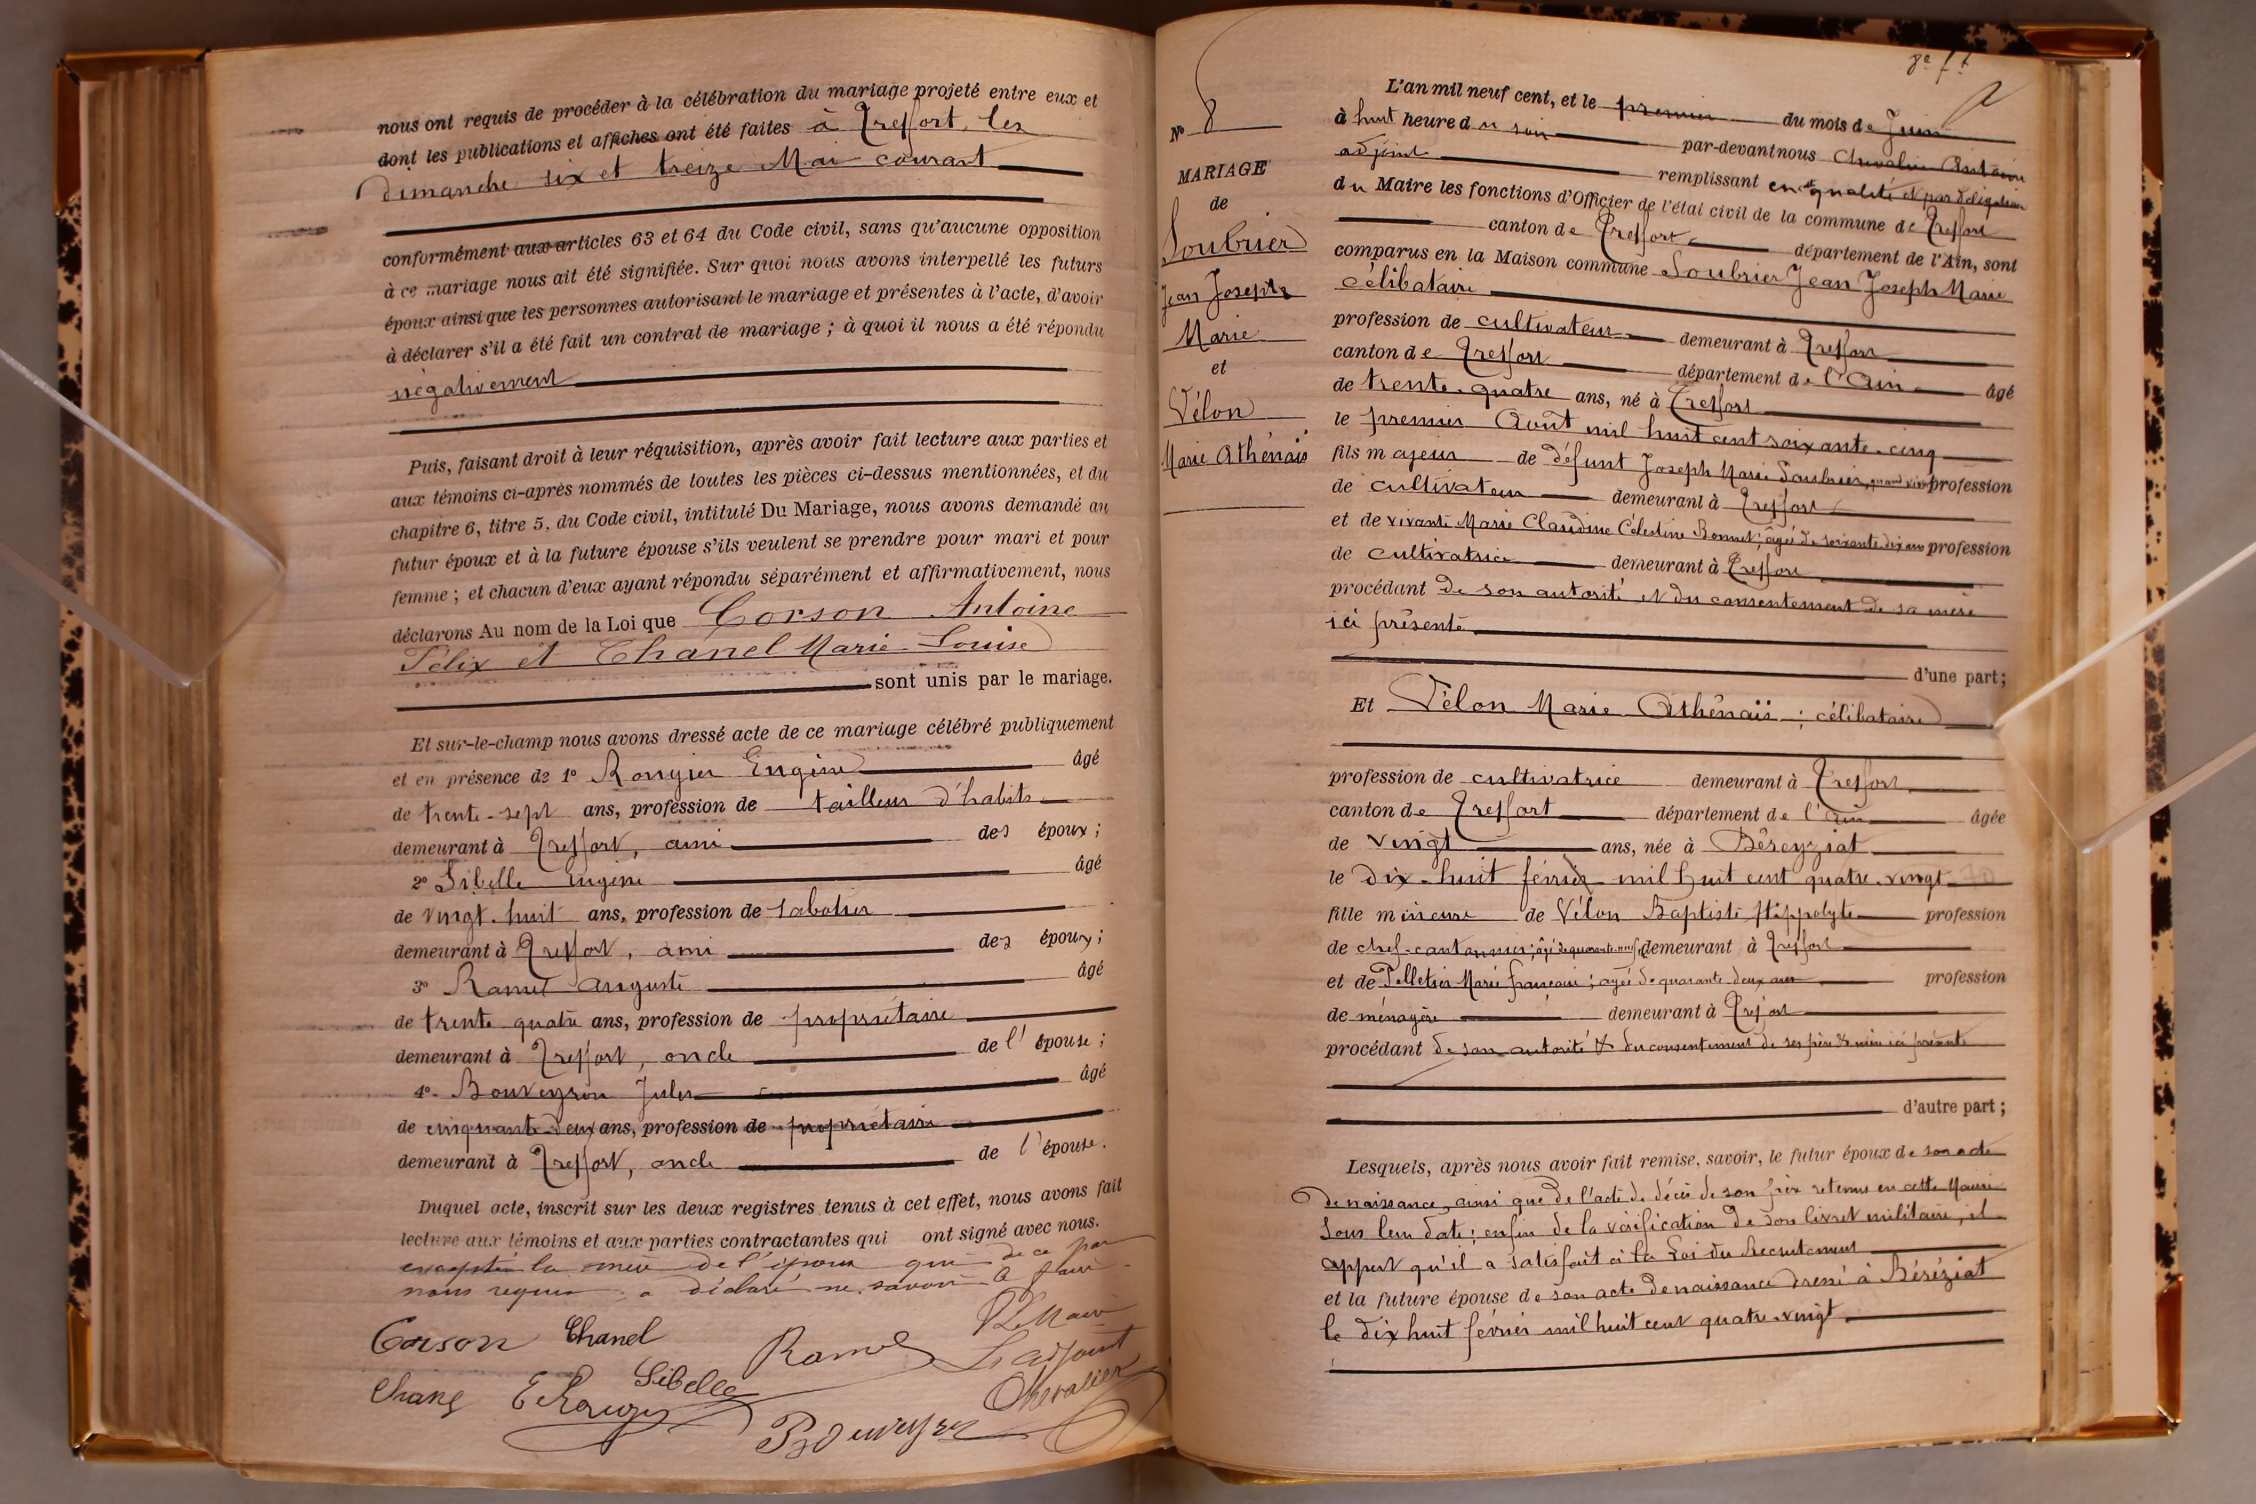 nous ont requis de procéder à la célébration du mariage projeté entre eux et
dont les publications et affiches ont été faites à Treffort, les
dimanche six et treize Mai courant
conformément aux articles 63 et 64 du Code civil, sans qu'aucune opposition
à ce mariage nous ait été signifiée. Sur quoi nous avons interpellé les futurs
époux ainsi que les personnes autorisant le mariage et présentes à l'acte, d'avoir
à déclarer s'il a été fait un contrat de mariage ; à quoi il nous a été répondu
négativement
Puis, faisant droit à leur réquisition, après avoir fait lecture aux parties et
aux témoins ci-après nommés de toutes les pièces ci-dessus mentionnées, et du
chapitre 6, titre 5, du Code civil, intitulé Du Mariage, nous avons demandé au
futur époux et à la future épouse s'ils veulent se prendre pour mari et pour
femme ; et chacun d'eux ayant répondu séparément et affirmativement, nous
déclarons Au nom de la Loi que Corson Antoine
Félix et Chanel Marie-Louise
sont unis par le mariage.
Et sur-le-champ nous avons dressé acte de ce mariage célébré publiquement
et en présence de 1° Rougier Eugène âgé
de trente-sept ans, profession de tailleur d'habits
demeurant à Treffort, ami des époux ;
2° Sibelle Eugène âgé
de vingt-huit ans, profession de sabotier
demeurant à Treffort, ami des époux ;
3° Ramel Auguste âgé
de trente quatre ans, profession de propriétaire
demeurant à Treffort, oncle de l'épouse ;
4° Bouveyron Jules âgé
de cinquante-deux ans, profession de propriétaire
demeurant à Treffort, oncle de l'épouse.
Duquel acte, inscrit sur les deux registres tenus à cet effet, nous avons fait
lecture aux témoins et aux parties contractantes qui ont signé avec nous.
exceptée la mère de l'époux qui de ce par
nous requise a déclaré ne savoir le faire
Corson Chanel Ramel P. Le Maire
L'adjoint
Chanel E Rougier Sibelle Chevalier
Bouveyron
8e ft
N° 8
MARIAGE
de
Soubrier
Jean Joseph
Marie
et
Vélon
Marie Athénaïs
L'an mil neuf cent, et le premier du mois de Juin
à huit heure du soir par-devant nous Chevalier Antoine
adjoint remplissant en cette qualité et par délégation
du Maire les fonctions d'Officier de l'état civil de la commune de Treffort
canton de Treffort département de l'Ain, sont
comparus en la Maison commune Soubrier Jean Joseph Marie
célibataire
profession de cultivateur demeurant à Treffort
canton de Treffort département de l'Ain âgé
de trente-quatre ans, né à Treffort
le premier Août mil huit cent soixante-cinq
fils majeur de défunt Joseph Marie Soubrier, quand vivait profession
de cultivateur demeurant à Treffort
et de vivante Marie Claudine Célestine Bonnet ; âgée de soixante dix ans profession
de cultivatrice demeurant à Treffort
procédant de son autorité et du consentement de sa mère
ici présente
d'une part ;
Et Vélon Marie Athénaïs ; célibataire
profession de cultivatrice demeurant à Treffort
canton de Treffort département de l'Ain âgée
de vingt ans, née à Béreyziat
le dix-huit février mil huit cent quatre-vingt
fille mineure de Vélon Baptiste Hippolyte profession
de chef-cantonnier ; âgé de quarante-neuf demeurant à Treffort
et de Pelletier Marie Françoise ; âgée de quarante-deux ans profession
de ménagère demeurant à Treffort
procédant de son autorité & du consentement de ses père & mère ici présents
d'autre part ;
Lesquels, après nous avoir fait remise, savoir, le futur époux de son acte
de naissance, ainsi que de l'acte de décès de son père retenus en cette Mairie
sous leur date ; enfin de la vérification de son livret militaire, il
appert qu'il a satisfait à la Loi du Recrutement
et la future épouse de son acte de naissance dressé à Béréziat
le dix huit février mil huit cent quatre-vingt